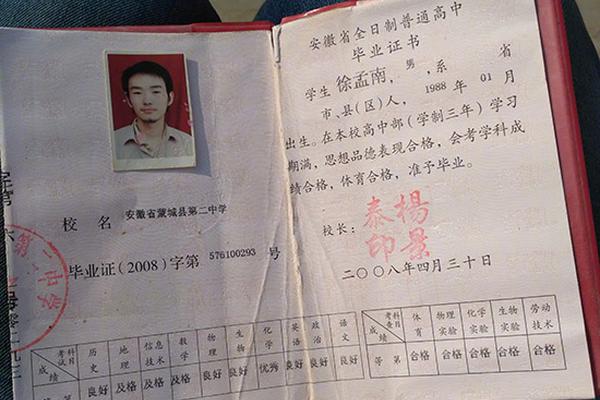 校名 安徽省蒙城县第二中学
毕业证(2008)字第 576100293 号
第二中学
考试科目 历史 地理 信息技术 数学 物理 生物 化学 英语 政治 语文
成绩 良好 及格 及格 及格 良好 良好 优秀 良好 良好 良好
安徽省全日制普通高中
毕业证书
学生 徐孟南,男,系 省
市、县(区)人,1988年01月
出生。在本校高中部(学制三年)学习
期满,思想品德表现合格,会考学科成
绩合格,体育合格,准予毕业。
校长: 楊景泰印
二〇〇八年四月三十日
考查科目 体育 物理实验 化学实验 生物实验 劳动技术
成绩
等第 合格 合格 合格 合格 合格